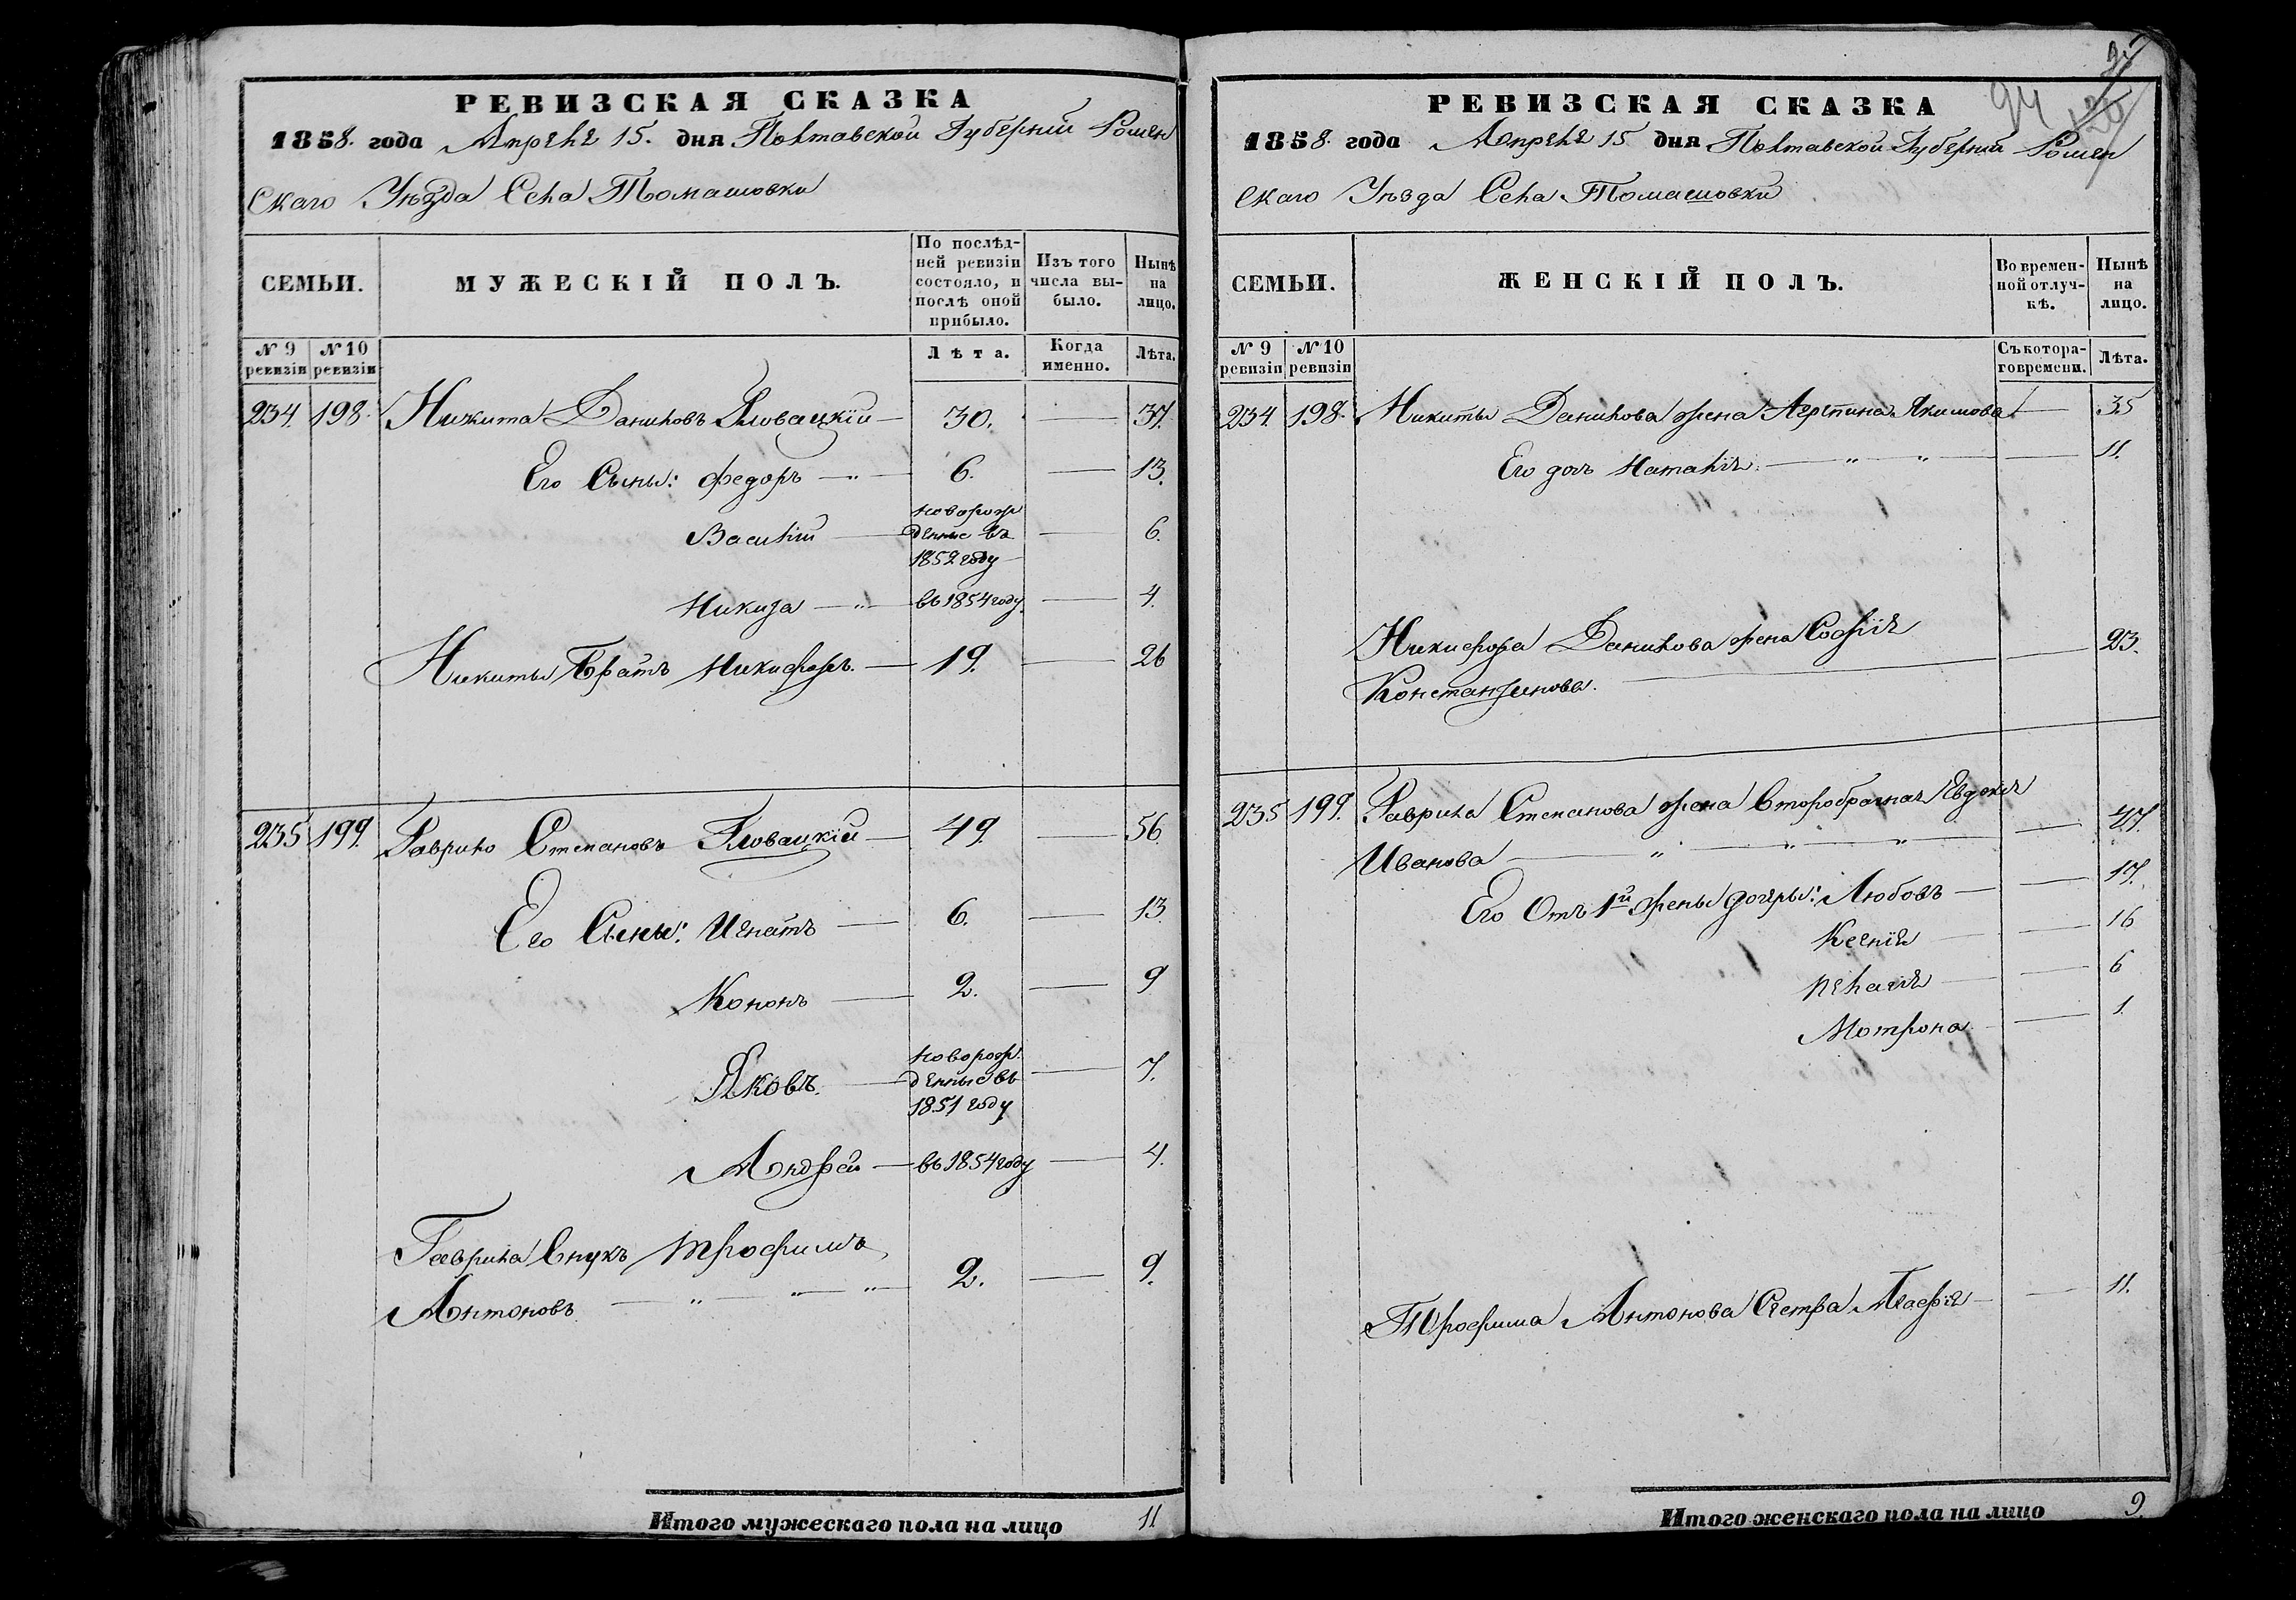 РЕВИЗСКАЯ СКАЗКА
1858. года Апреля 15. дня Полтавской Губернии Ромен
скаго Уѣзда Села Томашовки
СЕМЬИ.
МУЖЕСКІЙ ПОЛЪ.
По послѣд-
ней ревизіи
состояло, и
послѣ оной
прибыло.
Изъ того
числа вы-
было.
Нынѣ
на
лицо.
№ 9
ревизіи
№ 10
ревизіи
Лѣта.
Когда
именно.
Лѣта.
234. 198. Никита Даниловъ Гловацкій — 30. — 37.
Его Сыны: Федоръ — 6. — 13.
новорож
Василій — денные въ — 6.
1852 году
Никита — въ 1854 году — 4.
Никиты братъ Никифоръ — 19. — 26
235 199. Гаврило Степановъ Гловацкій — 49. — 56.
Его Сыны: Игнатъ — 6. — 13
Кононъ — 2. — 9
новорож
Яковъ. — денные въ — 7.
1851 году
Андрей — въ 1854 году — 4.
Гаврила внукъ Трофимъ
Антоновъ — " — " — " — 2. — 9.
Итого мужескаго пола на лицо 11
94
РЕВИЗСКАЯ СКАЗКА
1858. года Апреля 15 дня Полтавской Губернии Ромен
скаго Уѣзда Села Томашовки
СЕМЬИ.
ЖЕНСКІЙ ПОЛЪ.
Во времен-
ной отлуч-
кѣ.
Нынѣ
на
лицо.
№ 9
ревизіи
№ 10
ревизіи
Съ котора-
го времени.
Лѣта.
234. 198. Никиты Данилова жена Агрепина Якимова — 35
Его доч Наталія — " — " — 11.
Никифора Данилова жена Софія
Константинова. — 23.
235 199. Гаврила Степанова жена второбрачная Евдокія
Иванова — " — " — " — 47.
Его отъ 1й жены дочеры: Любовъ — 17.
Ксенія — 16
Пелагія — 6
Мотрона — 1.
Трофима Антонова Сестра Агафія — 11.
Итого женскаго пола на лицо 9.